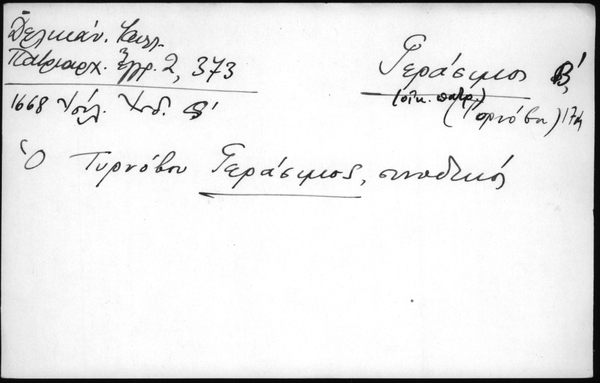 Δελικάν. Καλλ.
Πατριαρχ. Ἔγγρ. 2, 373
1668 Ἰούλ. Ἰνδ. Ϛ′
Γεράσιμος Β′
(οἰκ. πατρ.)
(Τορνόβου) 17
Ὁ Τυρνόβου Γεράσιμος, συνοδικός